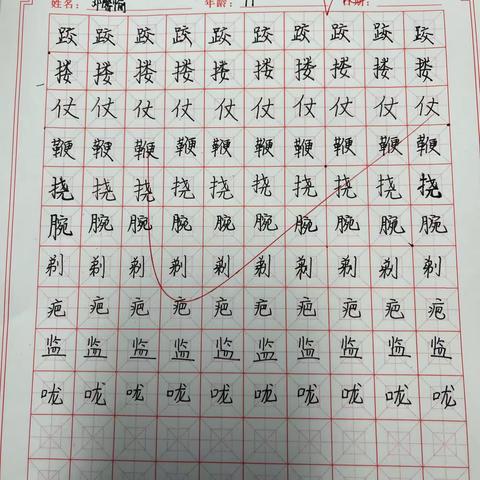 姓名: 年龄: 11
跤 跤 跤 跤 跤 跤 跤 跤 跤 跤
搂 搂 搂 搂 搂 搂 搂 搂 搂 搂
仗 仗 仗 仗 仗 仗 仗 仗 仗 仗
鞭 鞭 鞭 鞭 鞭 鞭 鞭 鞭 鞭 鞭
挠 挠 挠 挠 挠 挠 挠 挠 挠 挠
腕 腕 腕 腕 腕 腕 腕 腕 腕 腕
剃 剃 剃 剃 剃 剃 剃 剃 剃 剃
疤 疤 疤 疤 疤 疤 疤 疤 疤 疤
监 监 监 监 监 监 监 监 监 监
咙 咙 咙 咙 咙 咙 咙 咙 咙 咙